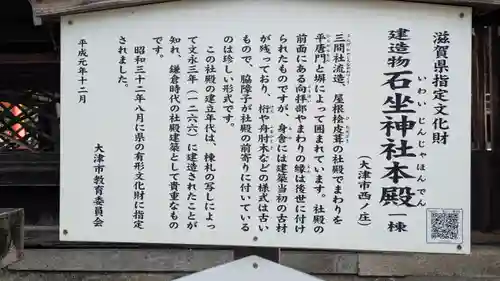 滋賀県指定文化財
建造物 石坐神社本殿 一棟
いわい じんじゃほんでん
(大津市西ノ庄)
三間社流造、屋根桧皮葺の社殿でまわりを
平唐門と塀によって囲まれています。社殿の
前面にある向拝部やまわりの縁は後世に付け
られたものですが、身舎には建築当初の古材
が残っており、桁や舟肘木などの様式は古い
もので、脇障子が社殿の前寄りに付いている
のは珍しい形式です。
この社殿の建立年代は、棟札の写しによっ
て文永三年(一二六六)に建造されたことが
知れ、鎌倉時代の社殿建築として貴重なもの
です。
昭和三十二年八月に県の有形文化財に指定
されました。
平成元年十二月
大津市教育委員会